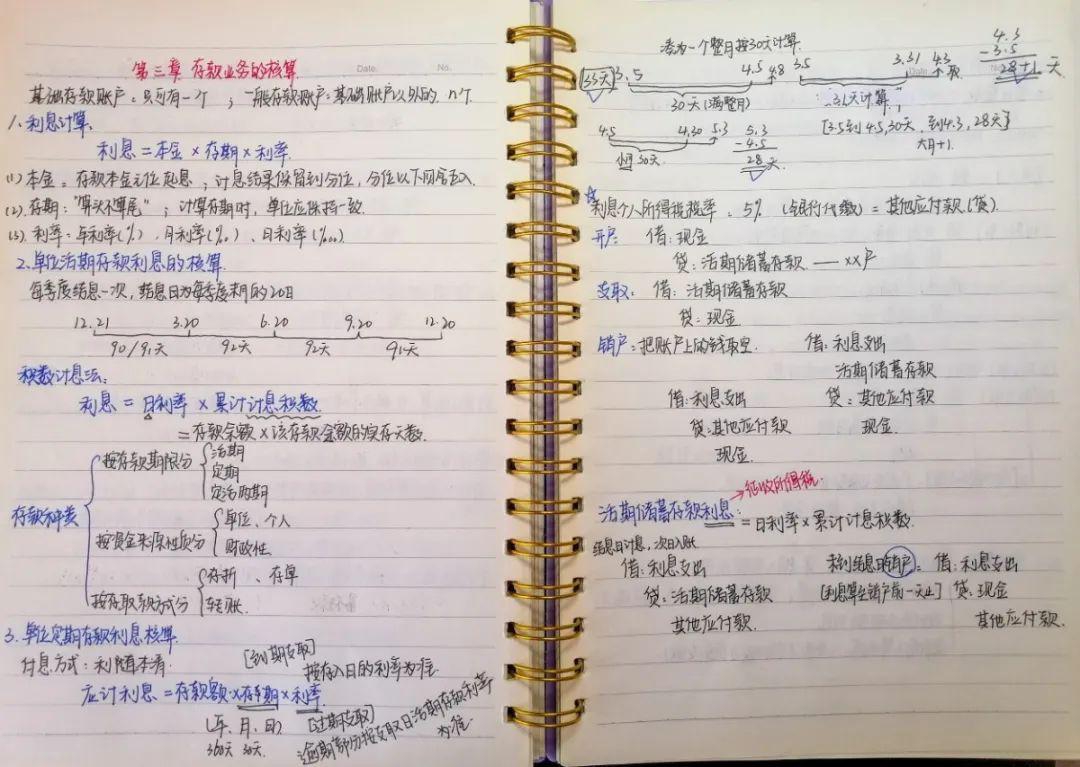 第三章 存款业务的核算
Date. No.
基础存款账户:只可有一个 ; 一般存款账户:基础账户以外的. n个.
1.利息计算.
利息=本金×存期×利率.
(1)本金:存款本金元位起息 ; 计息结果保留到分位,分位以下四舍五入.
(2).存期:"算头不算尾" ; 计算存期时,单位应保持一致.
(3).利率:年利率(%)、月利率(‰)、日利率(‱).
2.单位活期存款利息的核算.
每季度结息一次,结息日为每季度末月的20日
12.21 3.20 6.20 9.20 12.20
90/91天 92天 92天 91天
积数计息法:
利息=日利率×累计计息积数.
=存款余额×该存款余额的实存天数.
存款种类
按存款期限分
活期
定期
定活两期
按资金来源性质分
单位、个人
财政性
按存取款方式分
存折、存单
转账.
3.单位定期存款利息核算.
付息方式:利随本清.
[到期支取]
按存入日的利率为准.
应计利息=存款额×存期×利率.
(年、月、日)
360天 30天.
[过期支取]
逾期部分按支取日活期存款利率为准.
凑为一个整月按30天计算.
33天 3.5 4.5 4.8
30天(满整月)
3.5 3.31 4.3 取
"31天计算"
4.3
-3.5
28+1 天
4.5 4.30 5.3
30天.
5.3
-4.5
28天.
[3.5到4.5,30天.到4.3,28天]
大月+1.
☆利息个人所得税税率:5% (银行代缴)=其他应付款.(贷).
开户: 借:现金
贷:活期储蓄存款 —— XX户
支取: 借:活期储蓄存款
贷:现金
销户:把账户上的钱取空. 借:利息支出
活期储蓄存款
借:利息支出 贷:其他应付款
贷:其他应付款 现金.
现金.
→征收所得税.
活期储蓄存款利息:=日利率×累计计息积数.
结息日计息,次日入账
借:利息支出
贷:活期储蓄存款
其他应付款.
未到结息日销户: 借:利息支出
[利息算至销户前一天止] 贷:现金
其他应付款.